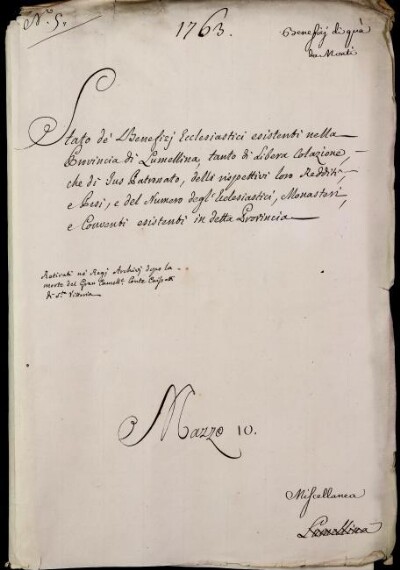 N.º 5.
1763.
Benefizj di quà
da Monti
Stato de' Benefizj Ecclesiastici esistenti nella
Provincia di Lumellina, tanto di Libera Colazione,
che di Jus Patronato, delli rispettivi loro Redditi,
e Pesi, e del Numero degl'Ecclesiastici, Monasteri,
e Conventi esistenti in detta Provincia
Ritirati ne' Regj Archivj dopo la
morte del Gran Cancell.e Conte
di S.ta Vittoria
Mazzo 10.
Miscellanea
Lumellina